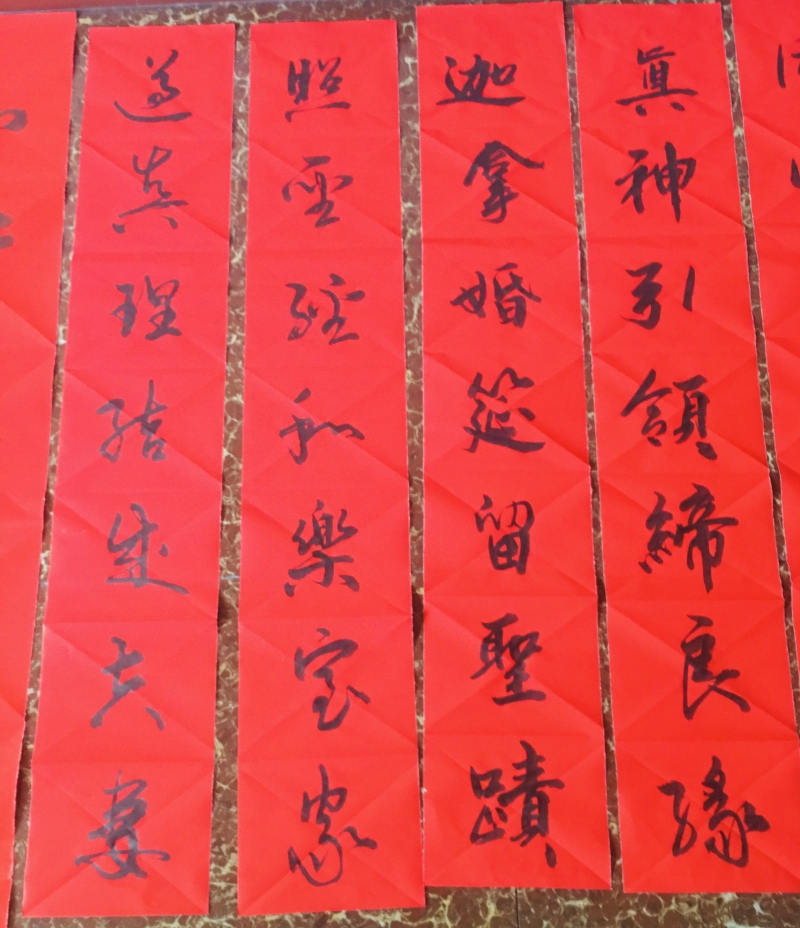 眞神引領締良緣
迦拿婚筵留聖蹟
照聖經和樂室家
遵真理結成夫妻